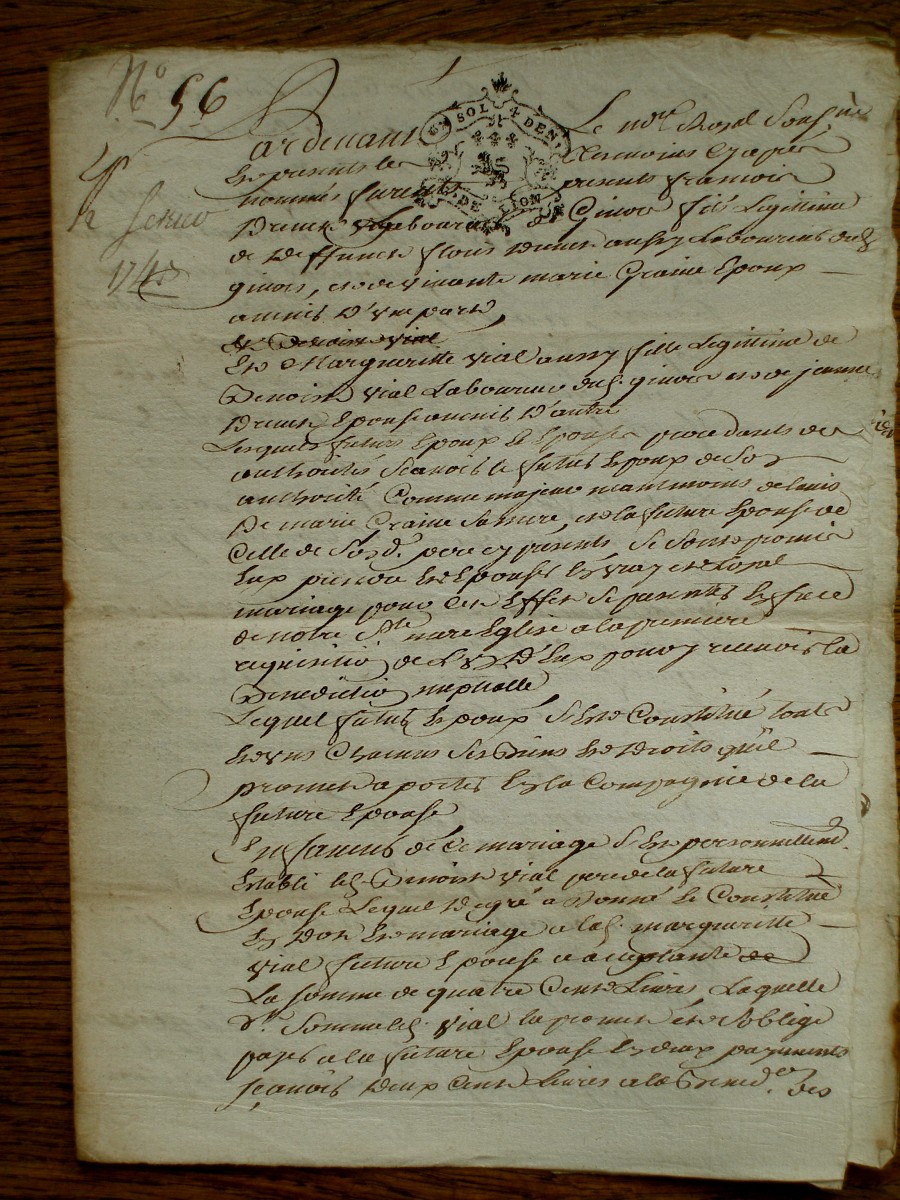 N° 56
Pardevant Le no.re Royal Soussigné
UN SOL 4 DEN
G. DE LYON
En presents les temoins cy apres
nommés furent presents francois
Brun Laboureur de Givor fils Legittime
de deffunct Brun aussy Laboureur dud.
givors, et de vivante marie Graine Epoux
amis d'vne part,
1743
Et Marguerite vial aussy fille Legittime de
Benoist vial Laboureur dud. givors et de jeanne
Brun Epouse amis d'autre
Lesquels futurs Epoux et Epouse procedants des
authorités scavoir le futur Epoux de Son
authorité Comme majeur neantmoins de lavis
De marie Graine Sa mere, et la future Epouse de
Celle de Sond. pere cy present, Se Sont promis
Eux prendre En Epouses En vray et Loyal
mariage pour Cet Effet Se presenter En face
de notre S.te mere Eglise a la premiere
requisition de L'vn D'Eux pour y recevoir la
Benediction nuptialle
Lequel futur Epoux S'Est Constitué tous
Et vns Chacuns Ses Biens Et Droits qu'il
promet aporter En la Compagnie de la
future Epouse
En faveur de Ce mariage S'Est personnellem.t
Establi led. Benoist vial pere de la future
Epouse Lequel De gré a Donné Et Constitué
En Dot Et mariage a lad. marguerite
vial future Epouse acceptante
La Somme de quatre Cent Livres Laquelle
d. Somme led. vial la promet et S'oblige
payer a la future Epouse En deux payements
scavoir Deux Cent Livres a la Bened.on des